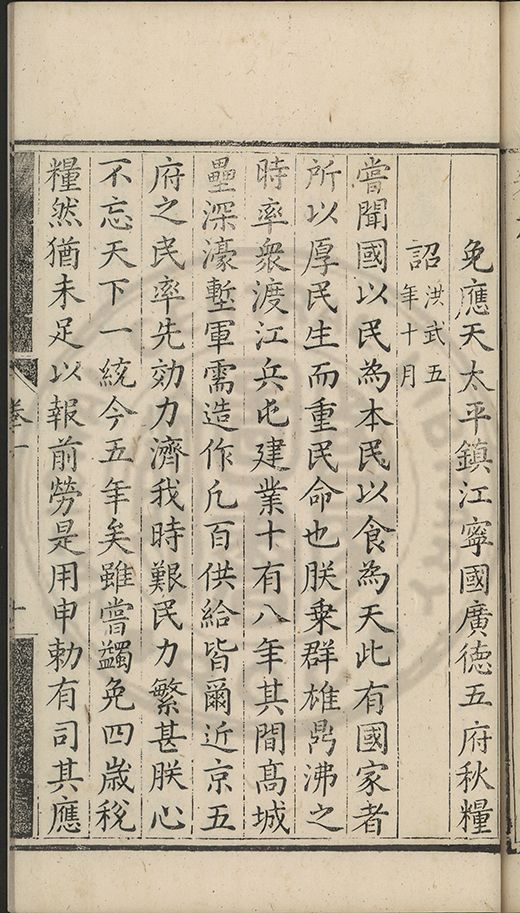 免應天太平鎮江寧國廣德五府秋糧
詔洪武五年十月
嘗聞國以民為本民以食為天此有國家者
所以厚民生而重民命也朕乗群雄鼎沸之
時率衆渡江兵屯建業十有八年其間髙城
壘深濠塹軍需造作凢百供給皆爾近京五
府之民率先効力濟我時艱民力繁甚朕心
不忘天下一統今五年矣雖嘗蠲免四歲稅
糧然猶未足以報前勞是用申勅有司其應
卷一
十